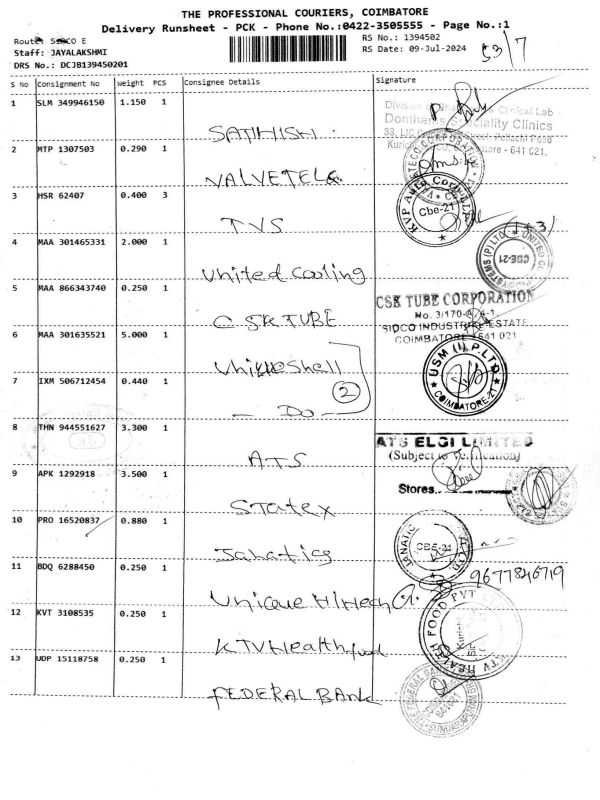 THE PROFESSIONAL COURIERS, COIMBATORE
Delivery Runsheet - PCK - Phone No.:0422-3505555 - Page No.:1
Route: SIDCO E
RS No.: 1394502
Staff: JAYALAKSHMI
RS Date: 09-Jul-2024
53/7
DRS No.: DCJB139450201
S No Consignment No Weight PCS Consignee Details Signature
1 SLM 349946150 1.150 1 SATHISH
Donthan's Speciality Clinics
641 021.
2 MTP 1307503 0.290 1 VALVETEL
3 HSR 62407 0.400 3 TVS
KVP Auto Cbe-21
4 MAA 301465331 2.000 1 United Cooling
CBE-21
5 MAA 866343740 0.250 1 CSK TUBE
CSK TUBE CORPORATION
No. 3/170-
SIDCO INDUSTRIAL ESTATE
COIMBATORE 641 021
6 MAA 301635521 5.000 1 Unique Shell
2
USM (I) P. LTD COIMBATORE-21
7 IXM 506712454 0.440 1 - Do -
8 THN 944551627 3.300 1 ATS
ATS ELGI LIMITED
(Subject to Verification)
9 APK 1292918 3.500 1 Statex
Stores
10 PRO 16520837 0.880 1 Janatics
JANATIC CBE-21
11 BDQ 6288450 0.250 1 Unique Hitech
9677846719
12 KVT 3108535 0.250 1 KTV Health food
KTV HEALTH FOOD PVT
13 UDP 15118758 0.250 1 FEDERAL BANK
THE FEDERAL BANK